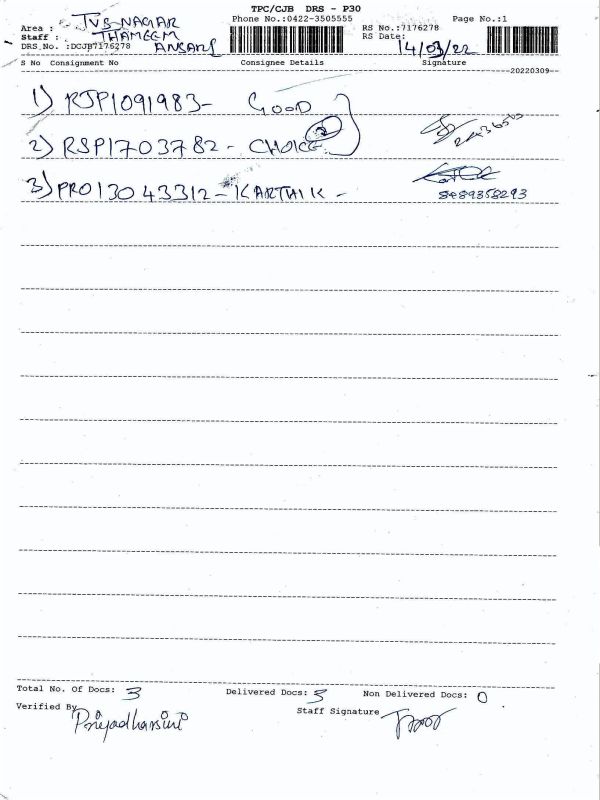 TPC/CJB DRS - P30
Area : TVS NAGAR Phone No.:0422-3505555 Page No.:1
Staff : THAMEEM ANSARI RS No.:7176278
DRS No. :DCJB7176278 RS Date: 14/03/22
S No Consignment No Consignee Details Signature
20220309
1) RJP1091983- GOOD
2) RSP1703782 - CHOICE 2
3) PRO13043312 - KARTHIK -
8489358293
Total No. Of Docs: 3 Delivered Docs: 3 Non Delivered Docs: 0
Verified By Priyadharsini Staff Signature